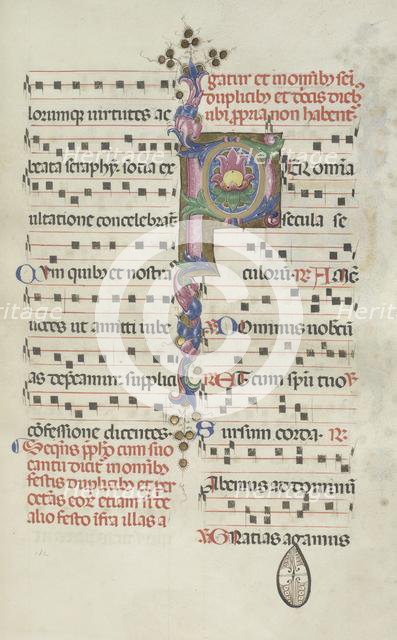 lorumque virtutes ac
beata seraphyn socia ex
ultatione concelebrant
Cum quibus et nostras
uoces ut amitti iube
as deprecamur supplici
confessione dicentes.
Sequens prefatio cum suo
cantu dicitur in omnibus
festis duplicibus et per
octavas eorum etiam si de
alio festo infra illas a
gatur et in omnibus semi
duplicibus et dominicis diebus
ubi propria non habent
PER omnia
secula se
culorum. R. Amen
Dominus nobiscum
R. Et cum spiritu tuo. V.
Sursum corda. R.
Habemus ad dominum
V. Gratias agamus
Heritage